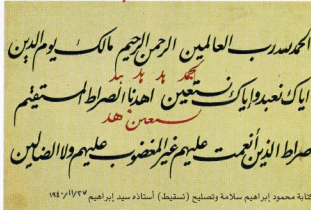 الحمد لله رب العالمين الرحمن الرحيم مالك يوم الدين
اياك نعبد واياك نستعين اهدنا الصراط المستقيم
نستعين هد
صراط الذين أنعمت عليهم غير المغضوب عليهم ولا الضالين
كتابة محمود إبراهيم سلامة وتصليح (تسقيط) أستاذه سيد إبراهيم ١٩٤٠/١١/٢٧